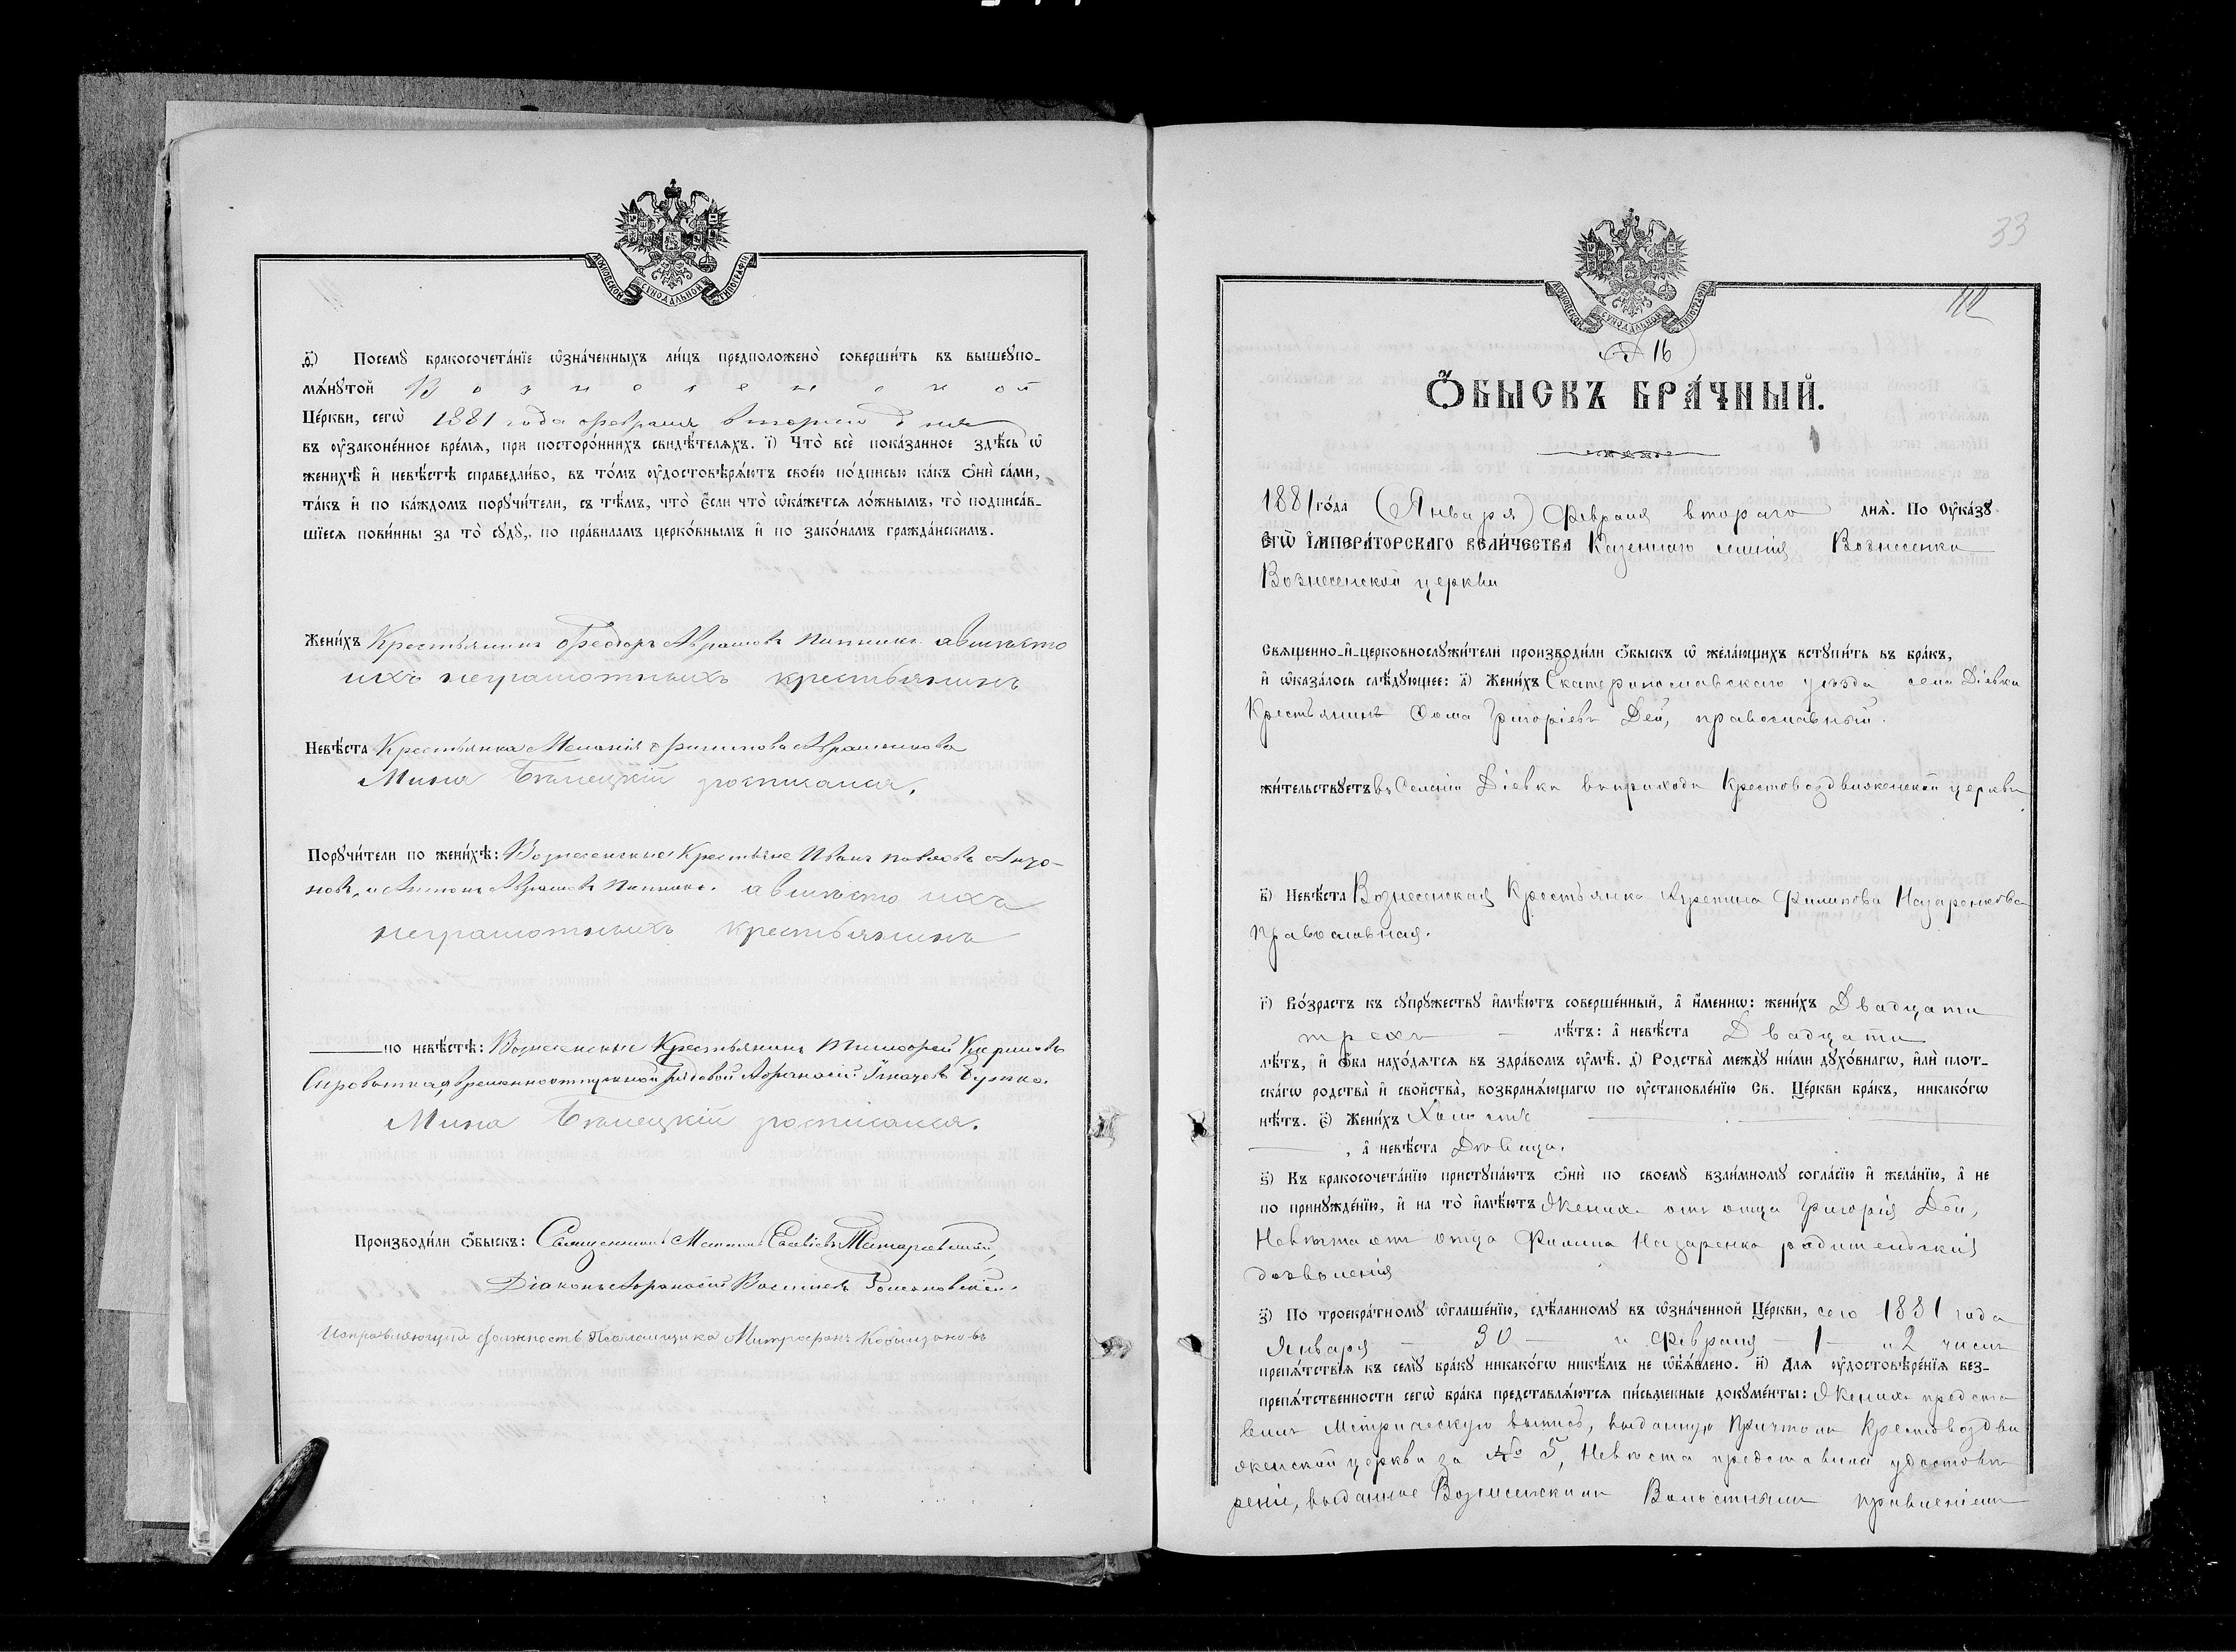 МОСКОВСКОЙ СУНОДАЛЬНОЙ ТИПОГРАФІИ
ѳ҃) Посемꙋ бракосочета́нїе ѡ҆зна́ченныхъ ли́цъ предположено̀ соверши́ть въ вышеꙋпо-
мѧ́нꙋтой Вознесенской
Це́ркви, сегѡ̀ 1881 года февраля втораго дня
въ ᲂу҆законе́нное вре́мѧ, при посторо́ннихъ свидѣ́телѧхъ. і҃) Что̀ всѐ пока́занное здѣ́сь ѡ҆
женихѣ̀ и҆ невѣ́стѣ справедли́во, въ то́мъ ᲂу҆достовѣрѧ́ютъ своє́ю по́дписью ка́къ ѻ҆нѝ са́ми,
та́къ и҆ по ка́ждомъ порꙋчи́тели, съ тѣ́мъ, что̀ є҆́сли что̀ ѡ҆ка́жетсѧ ло́жнымъ, то̀ подписа́в-
шїесѧ пови́нны за то̀ сꙋдꙋ̀, по пра́виламъ церко́внымъ и҆ по зако́намъ гражда́нскимъ.
Жени́хъ Крестьянинъ Феодоръ Аврамовъ а вмѣсто
ихъ неграмотныхъ крестьянинъ
Невѣ́ста Крестьянка Меланія Филипова
Мина Бѣлецкій росписался.
Порꙋчи́тели по женихѣ̀: Вознесенскіе Крестьяне Иванъ Павловъ
новъ, и Антонъ Аврамовъ а вмѣсто ихъ
неграмотныхъ крестьянинъ
по невѣ́стѣ: Вознесенскіе Крестьянинъ Тимофей Кириловъ
временноотпускной рядовой Афанасій Игнатовъ
Мина Бѣлецкій росписался.
Производи́ли ѻ҆́быскъ: Священникъ
Діаконъ Афанасій Васильевъ Романовскій.
Исправляющій должность Псаломщика Митрофанъ
33
МОСКОВСКОЙ СУНОДАЛЬНОЙ ТИПОГРАФІИ
112
№ 16
Ѻ҆́БЫСКЪ БРА́ЧНЫЙ.
1881 го́да (Января) Февраля втораго днѧ̀. По ᲂу҆ка́зꙋ
Є҆ГѠ̀ И҆МПЕРА́ТОРСКАГО ВЕЛИ́ЧЕСТВА Казеннаго селенія Вознесенки
Вознесенской церкви
Свѧщенно-и҆-церковнослꙋжи́тели производи́ли ѻ҆́быскъ ѡ҆ жела́ющихъ встꙋпи́ть въ бра́къ,
и҆ ѡ҆каза́лось слѣ́дꙋющее: а҃) Жени́хъ Екатеринославскаго уѣзда села Діевки
Крестьянинъ Фома Григоріевъ Дей, православный.
жи́тельствꙋетъ въ Селеніи Діевки въ приходѣ Крестовоздвиженской церкви
в҃) Невѣ́ста Вознесенская Крестьянка Филипова Назаренкова
православная.
г҃) Во́зрастъ къ сꙋпрꙋ́жествꙋ и҆мѣ́ютъ соверше́нный, а҆ и҆́менно: жени́хъ Двадцати
трехъ – лѣ́тъ: а҆ невѣ́ста Двадцати
лѣ́тъ, и҆ ѻ҆́ба нахо́дѧтсѧ въ здра́вомъ ᲂу҆мѣ̀. д҃) Родства̀ междꙋ̀ ни́ми дꙋхо́внагѡ, и҆лѝ плот-
ска́гѡ родства̀ и҆ свойства̀, возбранѧ́ющагѡ по ᲂу҆становле́нїю Св. Це́ркви бра́къ, никако́гѡ
нѣ́тъ. є҃) Жени́хъ Холостъ
, а҆ невѣ́ста Дѣвица.
ѕ҃) Къ бракосочета́нїю пристꙋпа́ютъ ѻ҆нѝ по своемꙋ̀ взаи́мномꙋ согла́сїю и҆ жела́нїю, а҆ не
по принꙋжде́нїю, и҆ на то̀ и҆мѣ́ютъ Женихъ отъ отца Григорія Дей,
Невѣста отъ отца Филипа Назаренка родительскія
дозволенія
з҃) По троекра́тномꙋ ѡ҆глаше́нїю, сдѣ́ланномꙋ въ ѡ҆зна́ченной Це́ркви, сего 1881 года
Января – 30 – и Февраля – 1 – и 2 чиселъ
препѧ́тствїѧ къ семꙋ̀ бра́кꙋ никако́гѡ никѣ́мъ не ѡ҆б̾ѧ́влено. и҃) Длѧ ᲂу҆достовѣре́нїѧ без-
препѧ́тственности сегѡ̀ бра́ка представлѧ́ютсѧ пи́сьменные докꙋме́нты: Женихъ предста
вилъ Метрическую выпись, выданную Причтомъ Крестовоздви
женской церкви за № 5, Невѣста представила удостовѣ
реніе, выданное Вознесенскимъ Волостнымъ правленіемъ